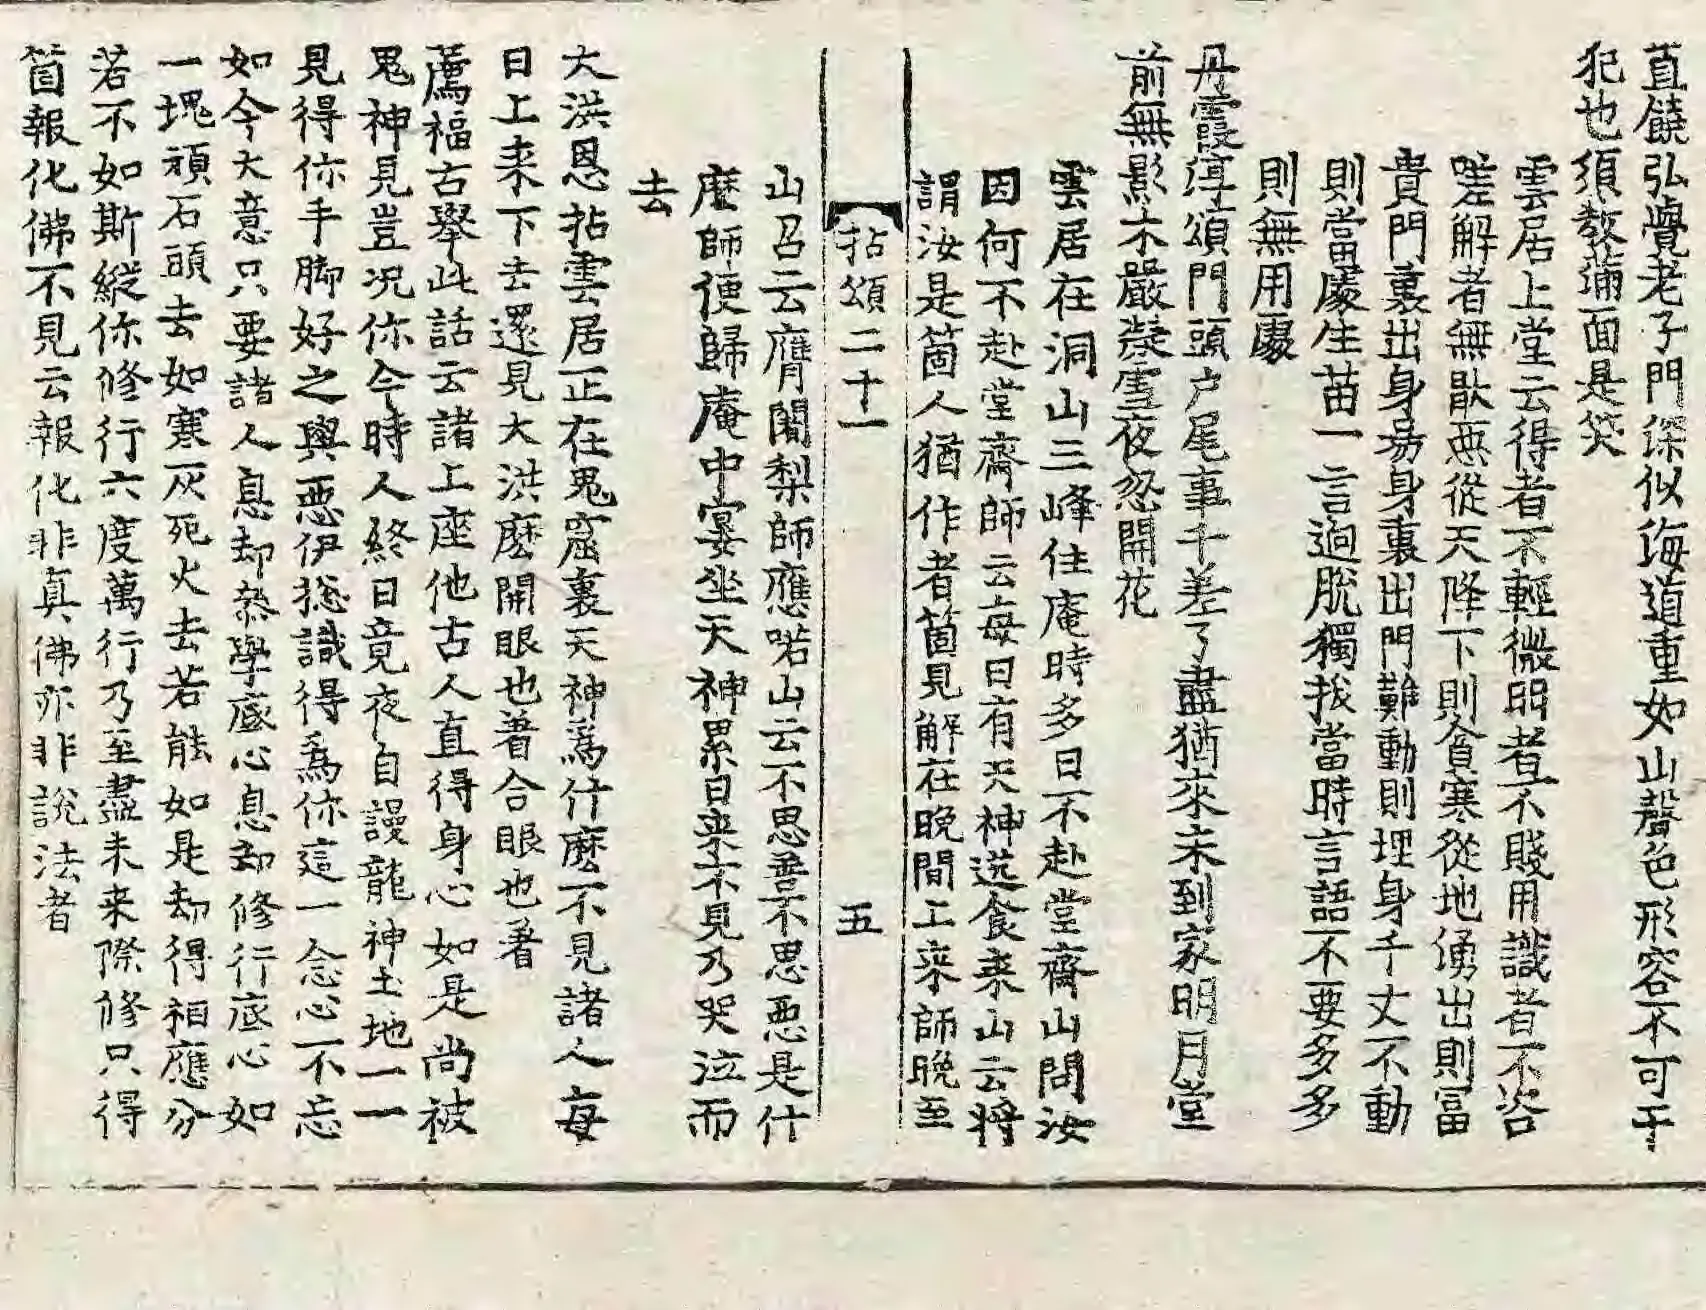 直饒弘覺老子門深似海道重如山聲色形容不可干
犯也須教蒲面是笑
雲居上堂云得者不輕微明者不賤用識者不咨
嗟解者無猒惡從天降下則貧寒從地湧出則富
貴門裏出身易身裏出門難動則埋身千丈不動
則當處生苗一言逈脫獨拔當時言語不要多多
則無用處
丹霞淳頌門頭户尾事千差了盡猶來未到家明月堂
前無影木嚴凝雪夜忽開花
雲居在洞山三峰住庵時多日不赴堂齋山問汝
因何不赴堂齋師云每日有天神送食来山云将
謂汝是箇人猶作者箇見解在晚間上来師晚至
拈頌二十一 五
山召云膺闍梨師應喏山云不思善不思悪是什
麽師便歸庵中宴坐天神累日来不見乃哭泣而
去
大洪恩拈雲居正在鬼窟裏天神爲什麽不見諸人每
日上来下去還見大洪麽開眼也著合眼也著
薦福古舉此話云諸上座他古人直得身心如是尚被
鬼神見豈况你今時人終日竟夜自謾龍神土地一一
見得你手脚好之與悪伊捴識得爲你這一念心不忘
如今大意只要諸人息却叅學底心息却修行底心如
一塊頑石頭去如寒灰死火去若能如是却得相應分
若不如斯縱你修行六度萬行乃至盡未来際修只得
箇報化佛不見云報化非真佛亦非說法者